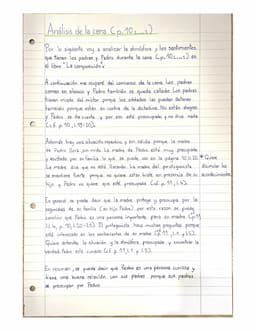 Análisis de la cena (p. 10 )
Por lo siguiente voy a analizar la atmósfera y los sentimientos
que tienen los padres y Pedro durante la cena (p. 10 ) en
el libro "La composición".
A continuación me ocuparé del comienzo de la cena. Los padres
comen en silencio y Pedro también se queda callado. Los padres
tienen miedo del militar porque los soldados les puedan detener
también, porque están en contra de la dictadura. No están alegres
y Pedro se da cuenta y por eso está preocupado y no dice nada
(cf. p. 10, l. 19-20).
Además hay una situación repentina y sin salida porque la madre
de Pedro llora sin ruido. La madre de Pedro está muy preocupada
y excitada por su familia, lo que se puede ver en la página
La madre dice que no está llorando. La madre del protagonista
se mantiene fuerte porque no quiere estar triste en presencia de su
hijo y Pedro no quiere que esté preocupada (cf. p. 11, l. 4).
Quiere
disimular los
acontecimientos
En general se puede decir que la madre protege y preocupa por la
seguridad de su familia (su hijo Pedro) por esta razón se puede
concluir que Pedro es una persona importante para su madre
El protagonista hace muchas preguntas porque
está interesado en los sentimientos de su madre
Quiere entender la situación y la atmósfera preocupada y encontrar la
verdad Pedro está curioso
En resumen, se puede decir que Pedro es una persona curiosa y
tiene una buena relación con sus padres porque sus padres
se preocupan por Pedro.